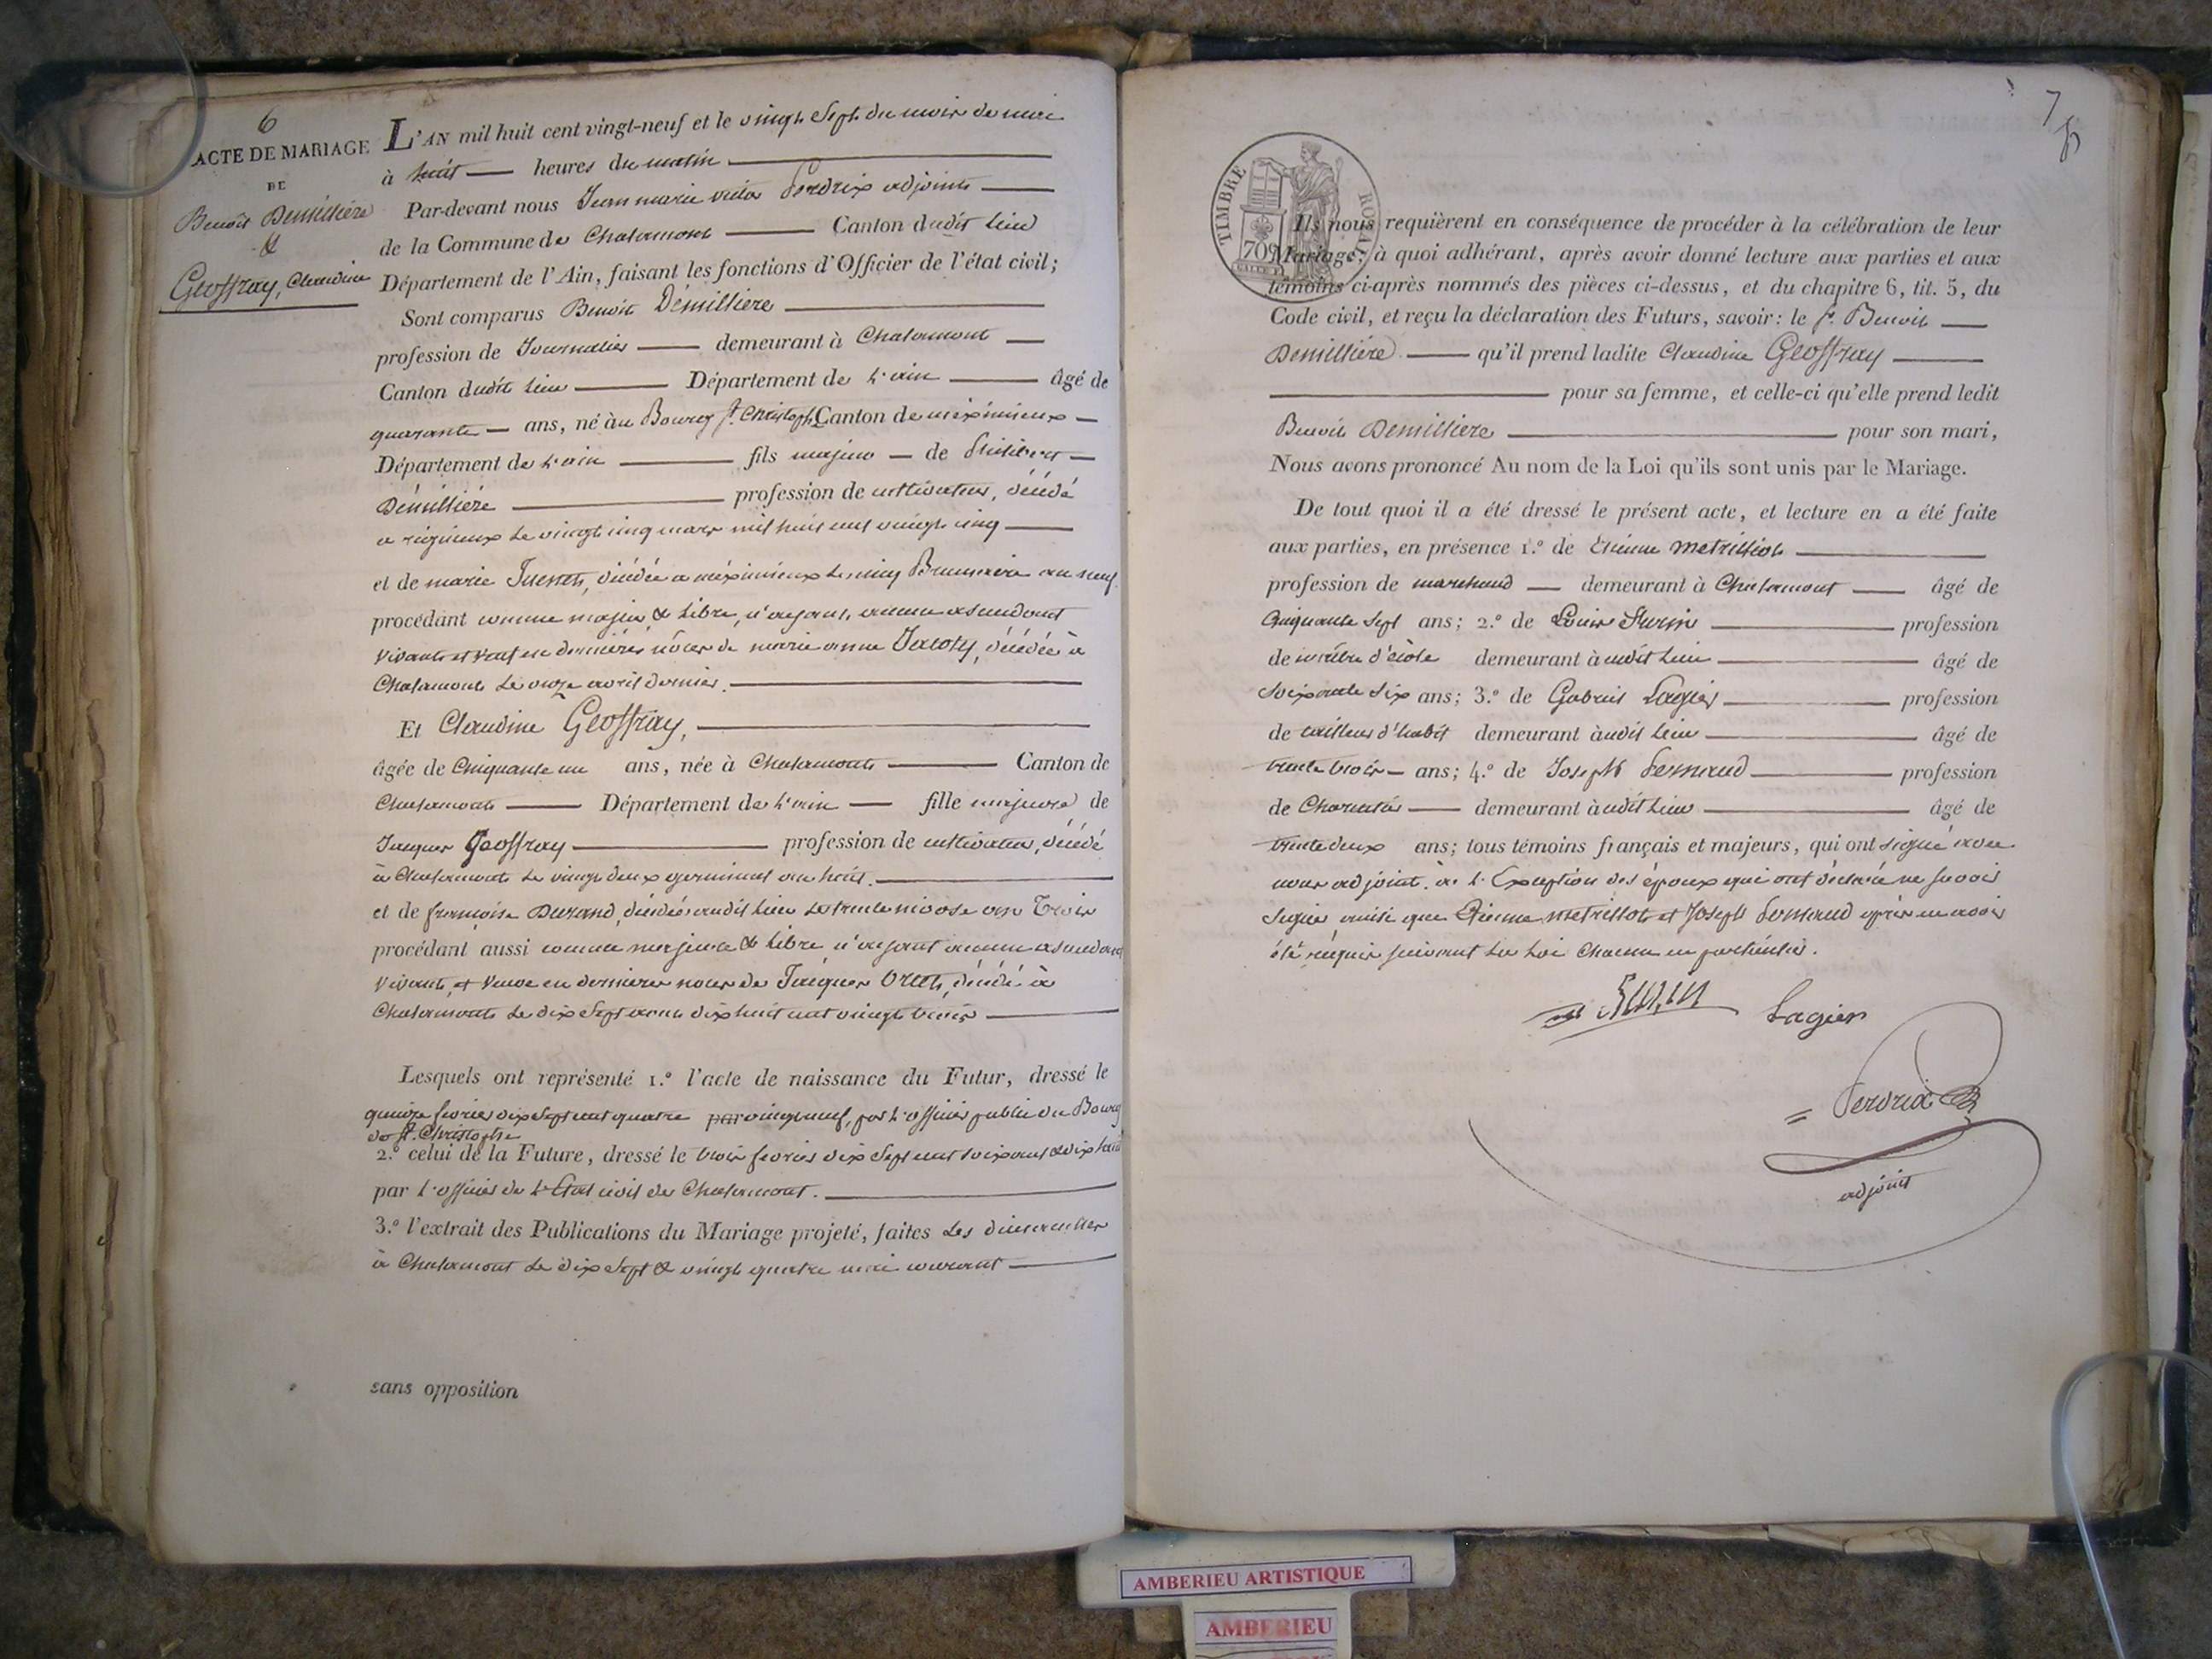 6
ACTE DE MARIAGE
DE
Benoit Demilliére
&
Geoffray, Claudine
L'AN mil huit cent vingt-neuf et le vingt Sept du mois de mai
à huit heures du matin
Par-devant nous Jean marie victor Perdrix adjoint
de la Commune de Chalamont Canton dudit lieu
Département de l'Ain, faisant les fonctions d'Officier de l'état civil;
Sont comparus Benoit Démilliere
profession de Journalier demeurant à Chalamont
Canton dudit lieu Département de L'ain âgé de
quarante ans, né au Bourg St. Christophe Canton de méximieux
Département de L'ain fils majeur de Philibert
Démilliére profession de cultivateur, décédé
a rignieux Le vingt cinq mars mil huit cent vingt cinq
et de marie décédée a méximieux Le cinq Brumaire an neuf
procédant comme majeur & libre, n'ayant aucun ascendant
vivant et veuf en dernières nôces de marie anne Jacoty, décédée à
Chalamont Le onze avril dernier.
Et Claudine Geoffray,
âgée de Cinquante un ans, née à Chalamont Canton de
Chalamont Département de L'ain fille majeure de
Jacques Geoffray profession de cultivateur, décédé
à Chalamont Le vingt deux germinal an huit.
et de françoise Durand, décédée audit lieu Le trente nivose an Trois
procédant aussi comme majeure & libre n'ayant aucun ascendant
vivant, et veuve en dernieres noces de Jacques décédé à
Chalamont Le dix Sept dix huit cent vingt trois
Lesquels ont représenté 1.º l'acte de naissance du Futur, dressé le
quinze fevrier dix Sept cent quatre par vingt neuf, par L'officier public du Bourg
de St. Christophe
2.º celui de la Future, dressé le trois fevrier dix Sept cent soixante & dix huit
par L'officier de L'Etat civil de Chalamont.
3.º l'extrait des Publications du Mariage projeté, faites Les dimanches
à Chalamont Le dix Sept & vingt quatre mai courant
sans opposition
7
TIMBRE ROYAL
70
Ils nous requièrent en conséquence de procéder à la célébration de leur
Mariage; à quoi adhérant, après avoir donné lecture aux parties et aux
témoins ci-après nommés des pièces ci-dessus, et du chapitre 6, tit. 5, du
Code civil, et reçu la déclaration des Futurs, savoir: le S. Benoit
Demilliére qu'il prend ladite Claudine Geoffray
pour sa femme, et celle-ci qu'elle prend ledit
Benoit Demilliere pour son mari,
Nous avons prononcé Au nom de la Loi qu'ils sont unis par le Mariage.
De tout quoi il a été dressé le présent acte, et lecture en a été faite
aux parties, en présence 1.º de Etienne metrillot
profession de marchand demeurant à Chalamont âgé de
Cinquante Sept ans; 2.º de Louis profession
de maître d'école demeurant audit lieu âgé de
Soixante Six ans; 3.º de Gabriel Lagier profession
de tailleur d'habit demeurant audit lieu âgé de
trente trois ans; 4.º de Joseph profession
de demeurant audit lieu âgé de
trente deux ans; tous témoins français et majeurs, qui ont signé avec
nous adjoint. à L'Exception des époux qui ont déclaré ne savoir
signer ainsi que Etienne metrillot et Joseph après en avoir
été requis suivant La Loi Chacun en particulier.
Lagier
Perdrix
adjoint
AMBERIEU ARTISTIQUE
AMBERIEU